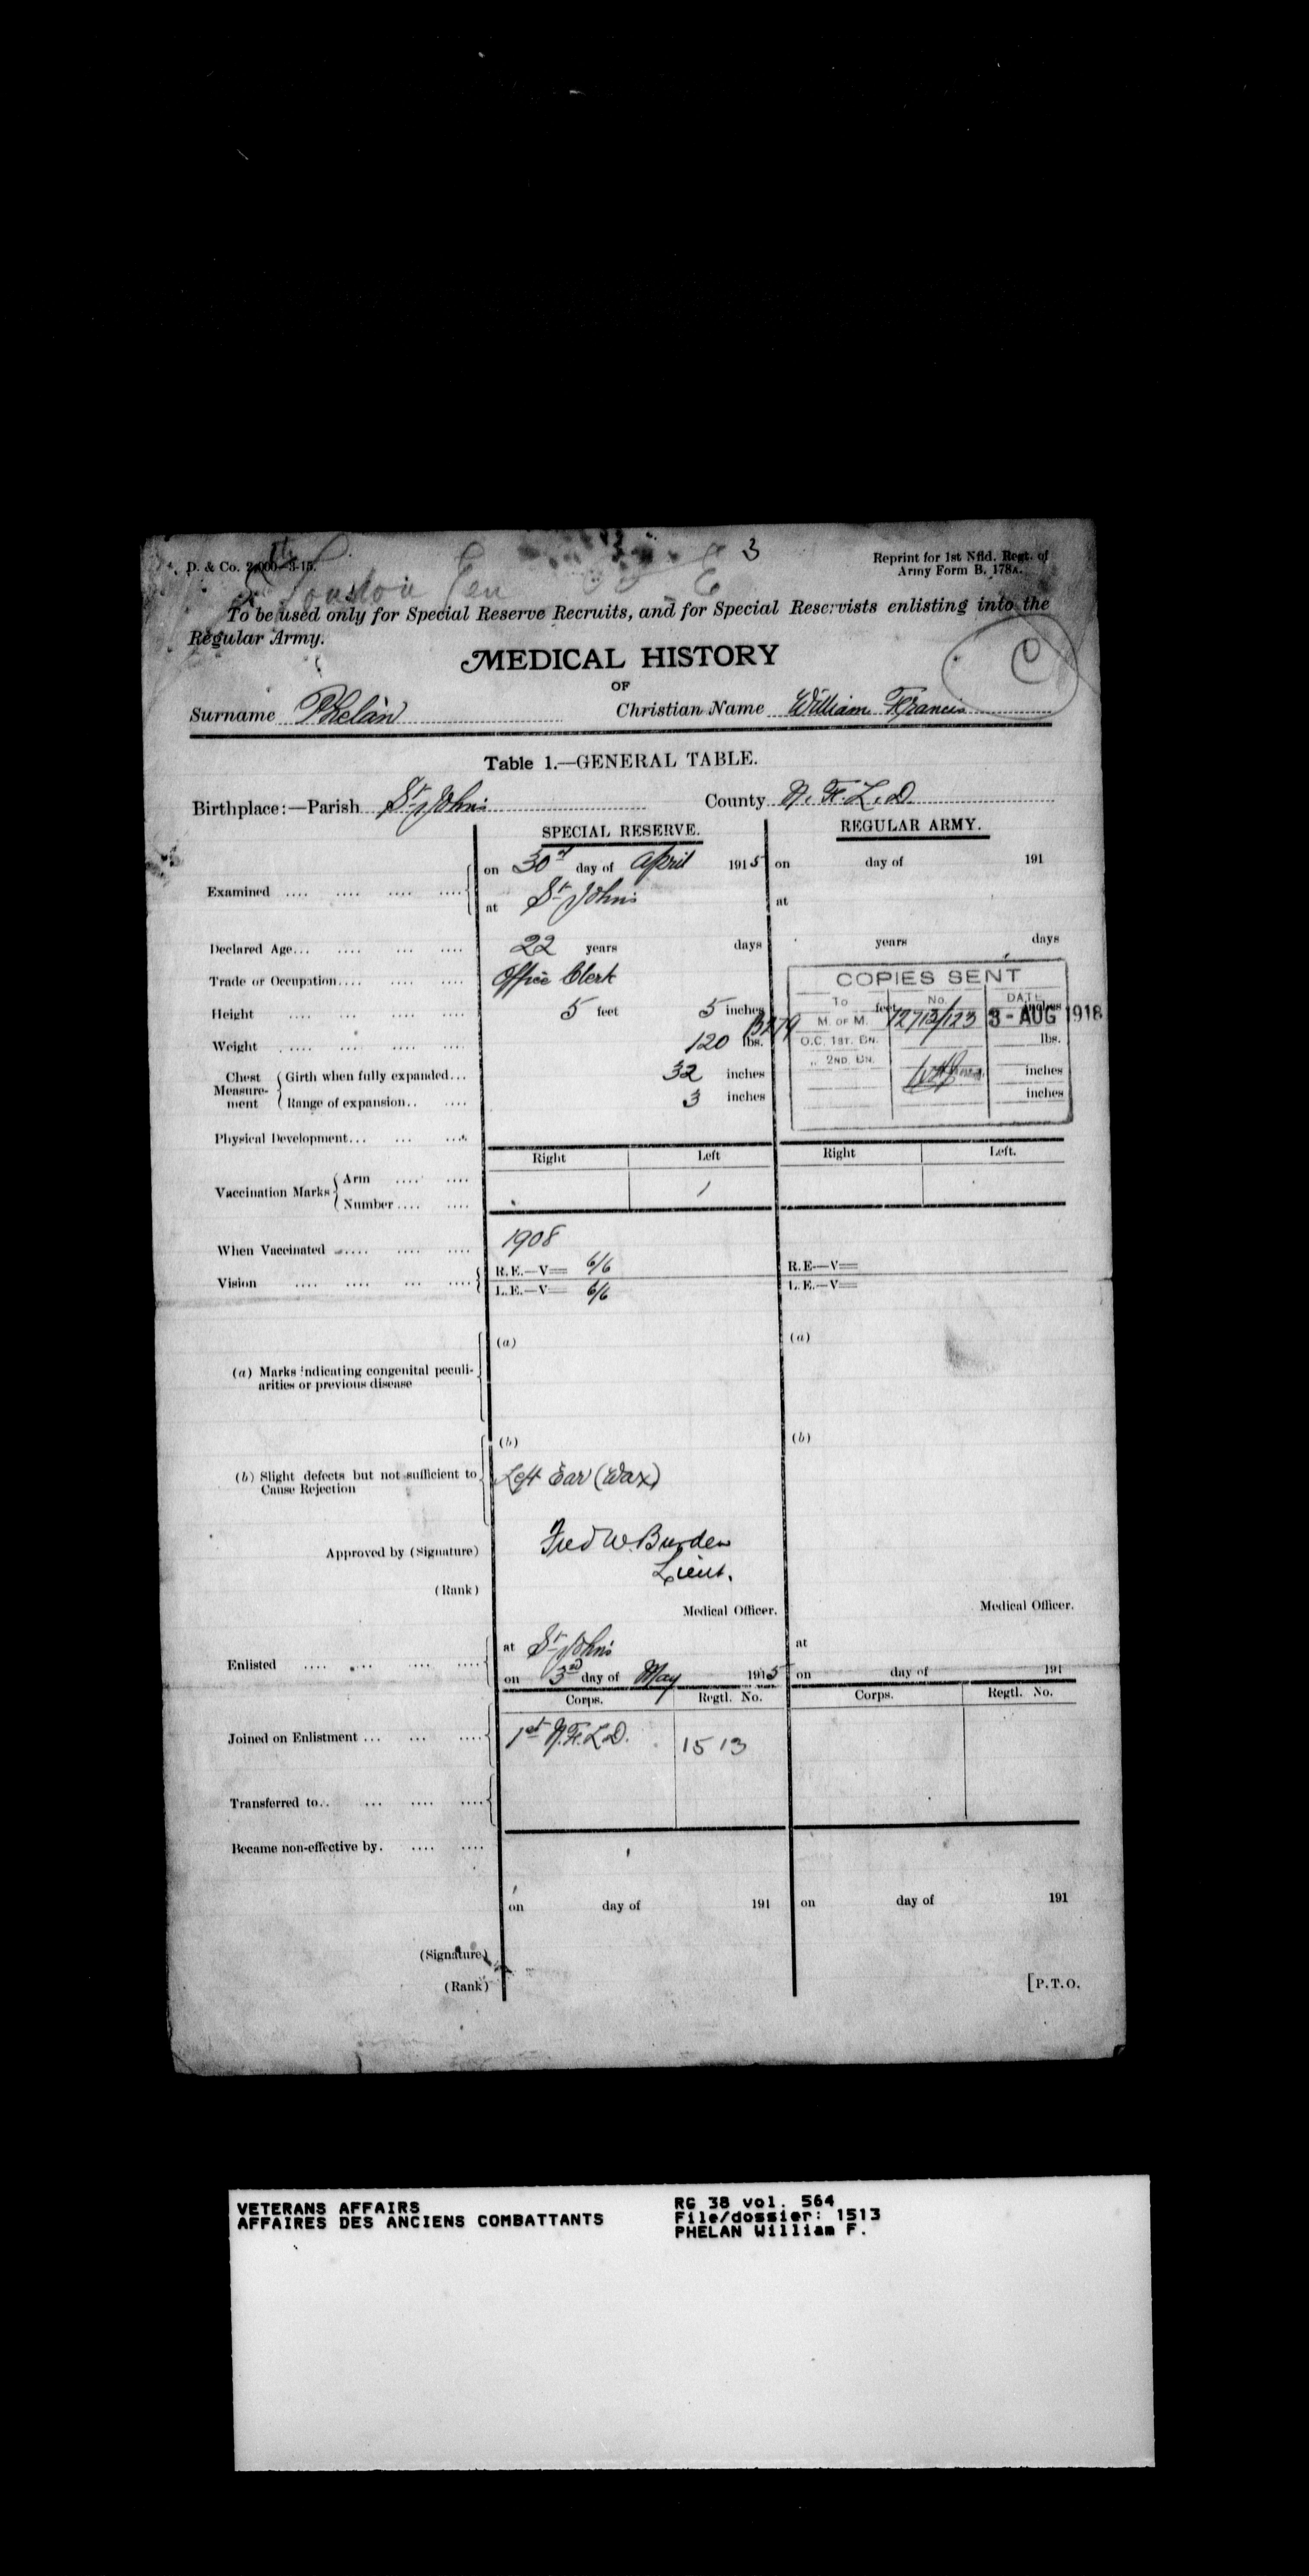 3
D. & Co. 2,000—3-15.
Reprint for 1st Nfld. Regt. of
Army Form B. 178A.
London Gen
To be used only for Special Reserve Recruits, and for Special Reservists enlisting into the
Regular Army.
C
MEDICAL HISTORY
OF
Surname Phelan Christian Name William Francis
Table 1.—GENERAL TABLE.
Birthplace:—Parish St John's County N.F.L.D.
SPECIAL RESERVE. REGULAR ARMY.
Examined .... .... .... .... on 30th day of April 1915 on day of 191
at St John's at
Declared Age... .... ... .... 22 years days years days
Trade or Occupation.... .... .... Office Clerk
Height .... ... .... .... 5 feet 5 inches feet inches
Weight .... ... .... .... 120 lbs. lbs.
COPIES SENT
To No. DATE
M. OF M. 3 - AUG 1918
O.C. 1ST. BN.
" 2ND. BN.
Chest Measurement Girth when fully expanded... 32 inches inches
Range of expansion.. .... 3 inches inches
Physical Development... ... ....
Right Left Right Left.
Vaccination Marks Arm .... ....
Number .... .... 1
When Vaccinated .... .... .... 1908
Vision .... .... ... .... R.E.—V= 6/6 R.E—V=
L.E.—V= 6/6 L.E.—V=
(a) (a)
(a) Marks indicating congenital peculi-
arities or previous disease
(b) (b)
(b) Slight defects but not sufficient to
Cause Rejection
Left Ear (Wax)
Approved by (Signature) Fred W. Burden
Lieut.
(Rank)
Medical Officer. Medical Officer.
Enlisted .... .... .... .... at St John's at
on 3rd day of May 1915 on day of 191
Corps. Regtl. No. Corps. Regtl. No.
Joined on Enlistment ... ... .... 1st N.F.L.D. 1513
Transferred to.. ... .... ....
Became non-effective by. .... ....
on day of 191 on day of 191
(Signature)
(Rank)
[P.T.O.
VETERANS AFFAIRS
AFFAIRES DES ANCIENS COMBATTANTS
RG 38 vol. 564
File/dossier: 1513
PHELAN William F.